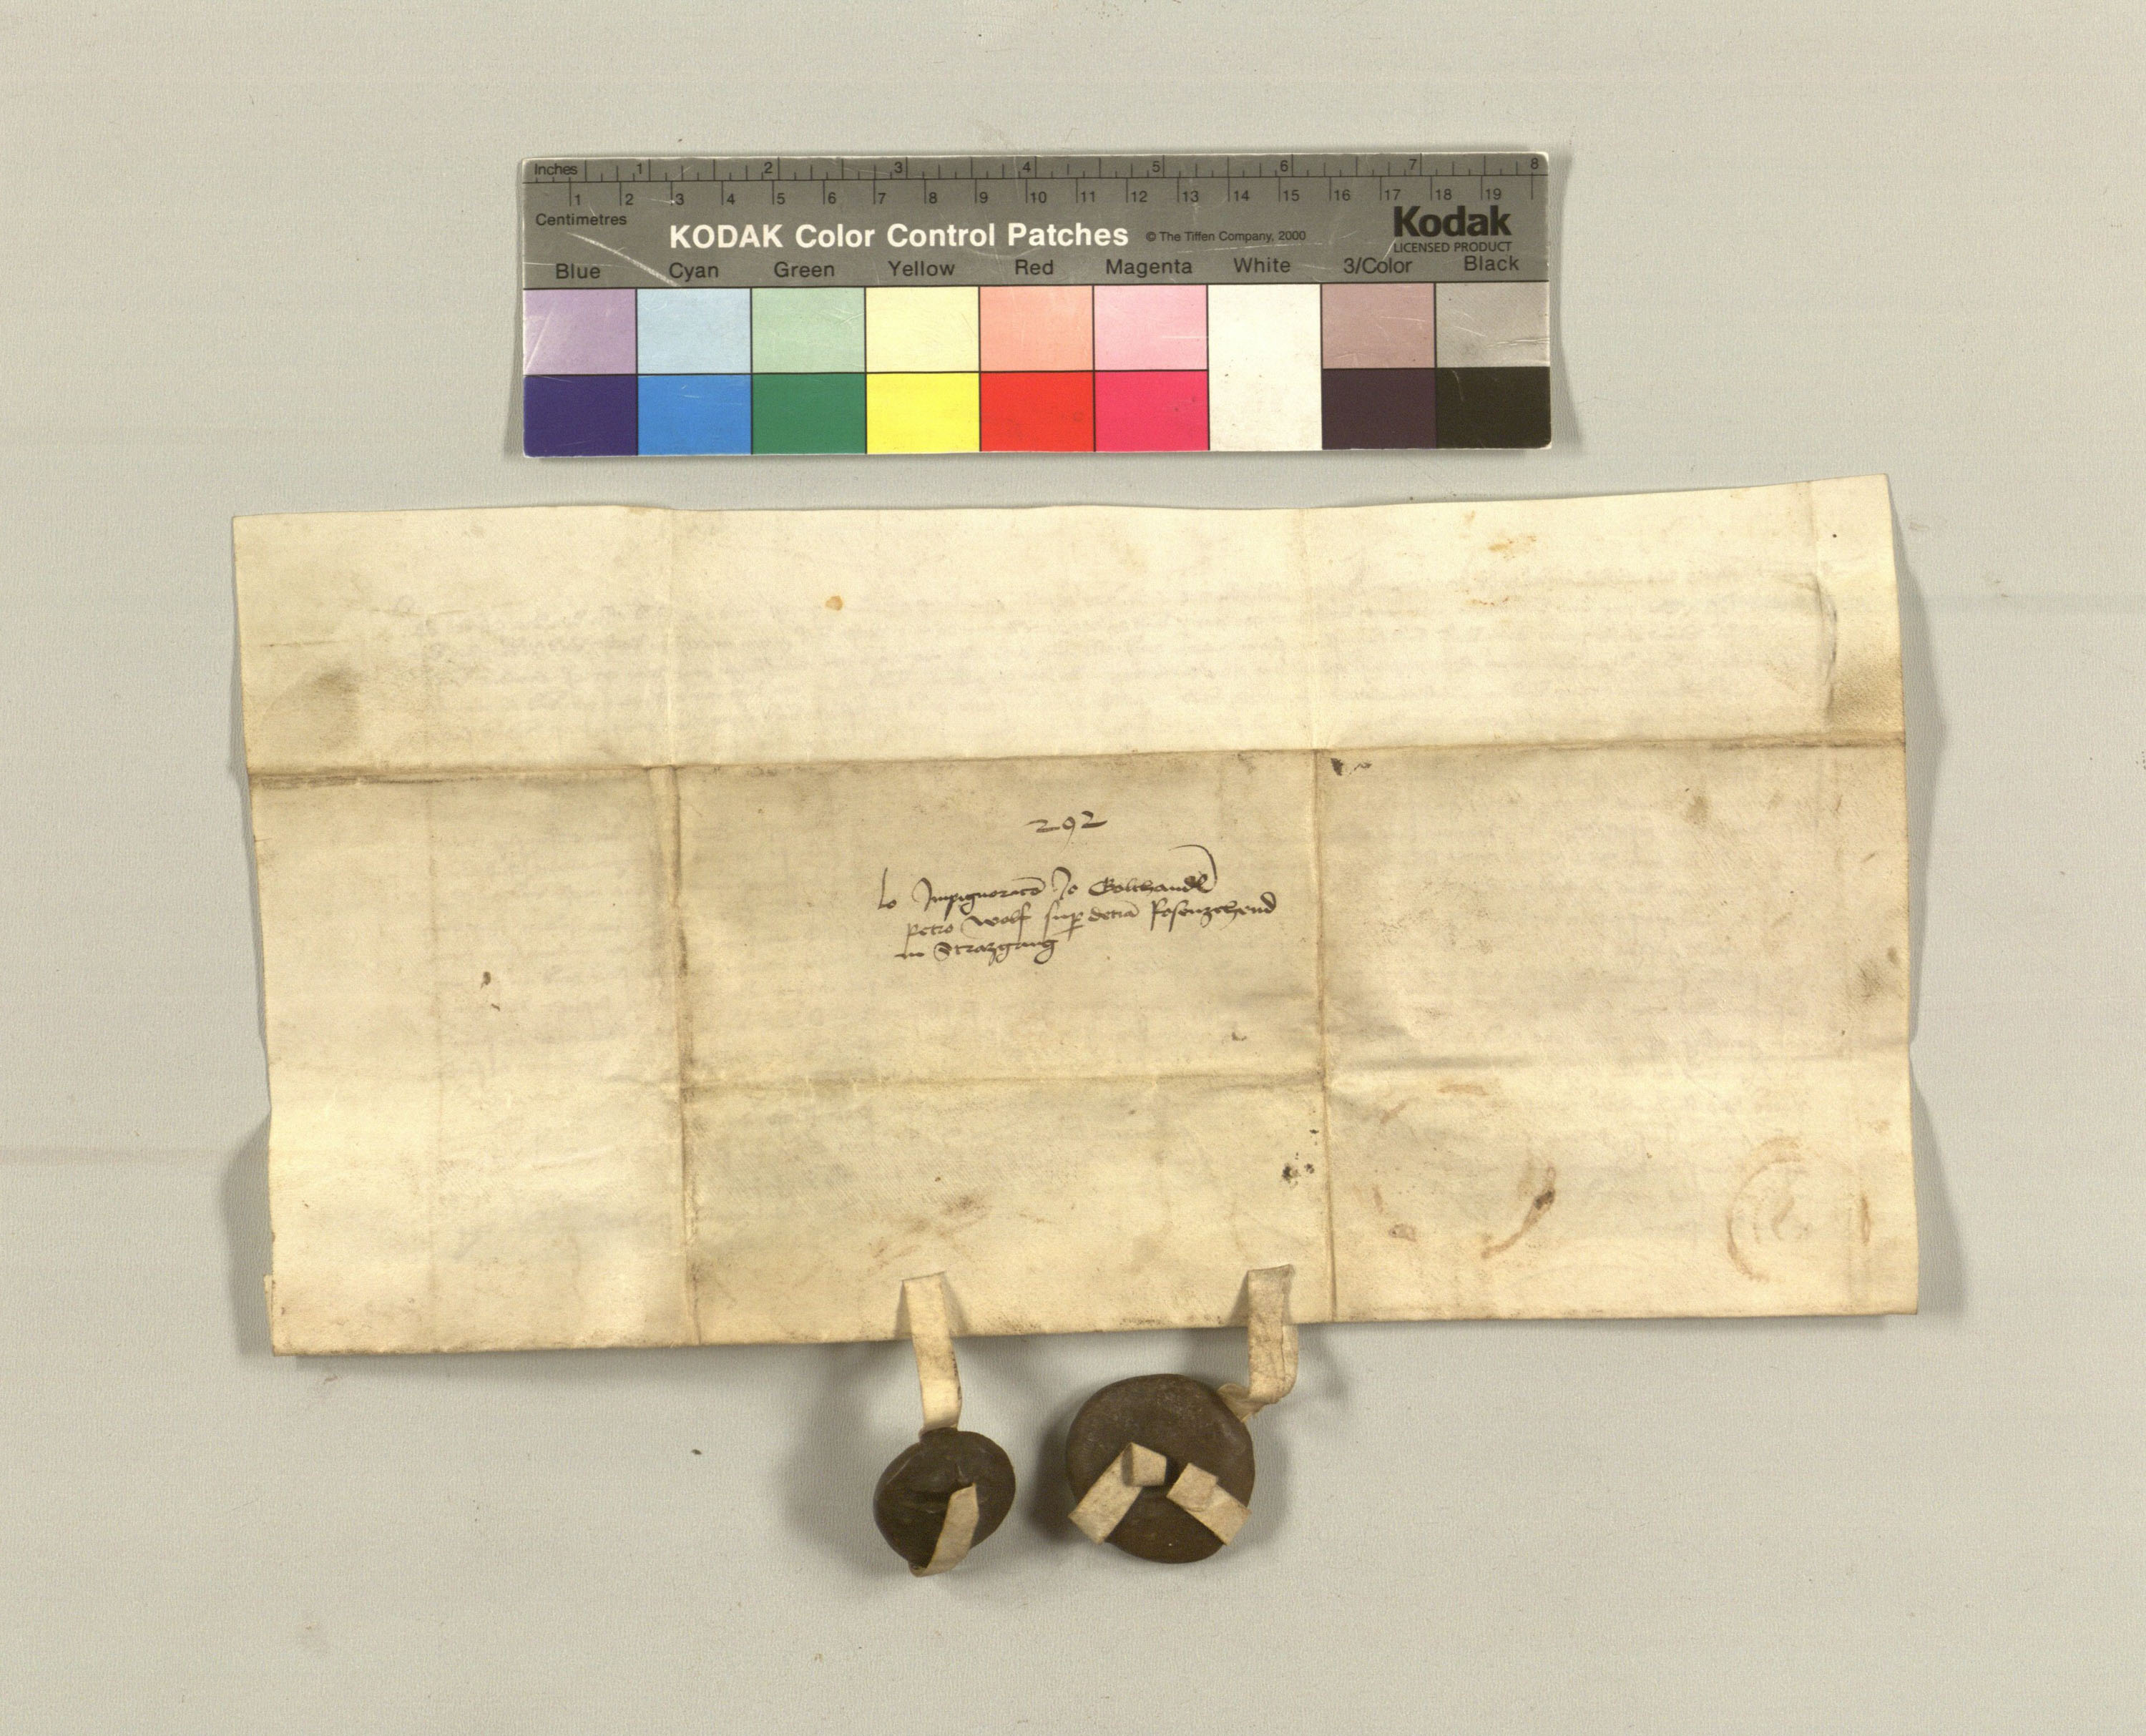 Inches 1 2 3 4 5 6 7 8
1 2 3 4 5 6 7 8 9 10 11 12 13 14 15 16 17 18 19
Centimetres
KODAK Color Control Patches © The Tiffen Company, 2000 Kodak
LICENSED PRODUCT
Blue Cyan Green Yellow Red Magenta White 3/Color Black
292
Impignoratō Jo
petro Wolf sup decia
in Strazgang